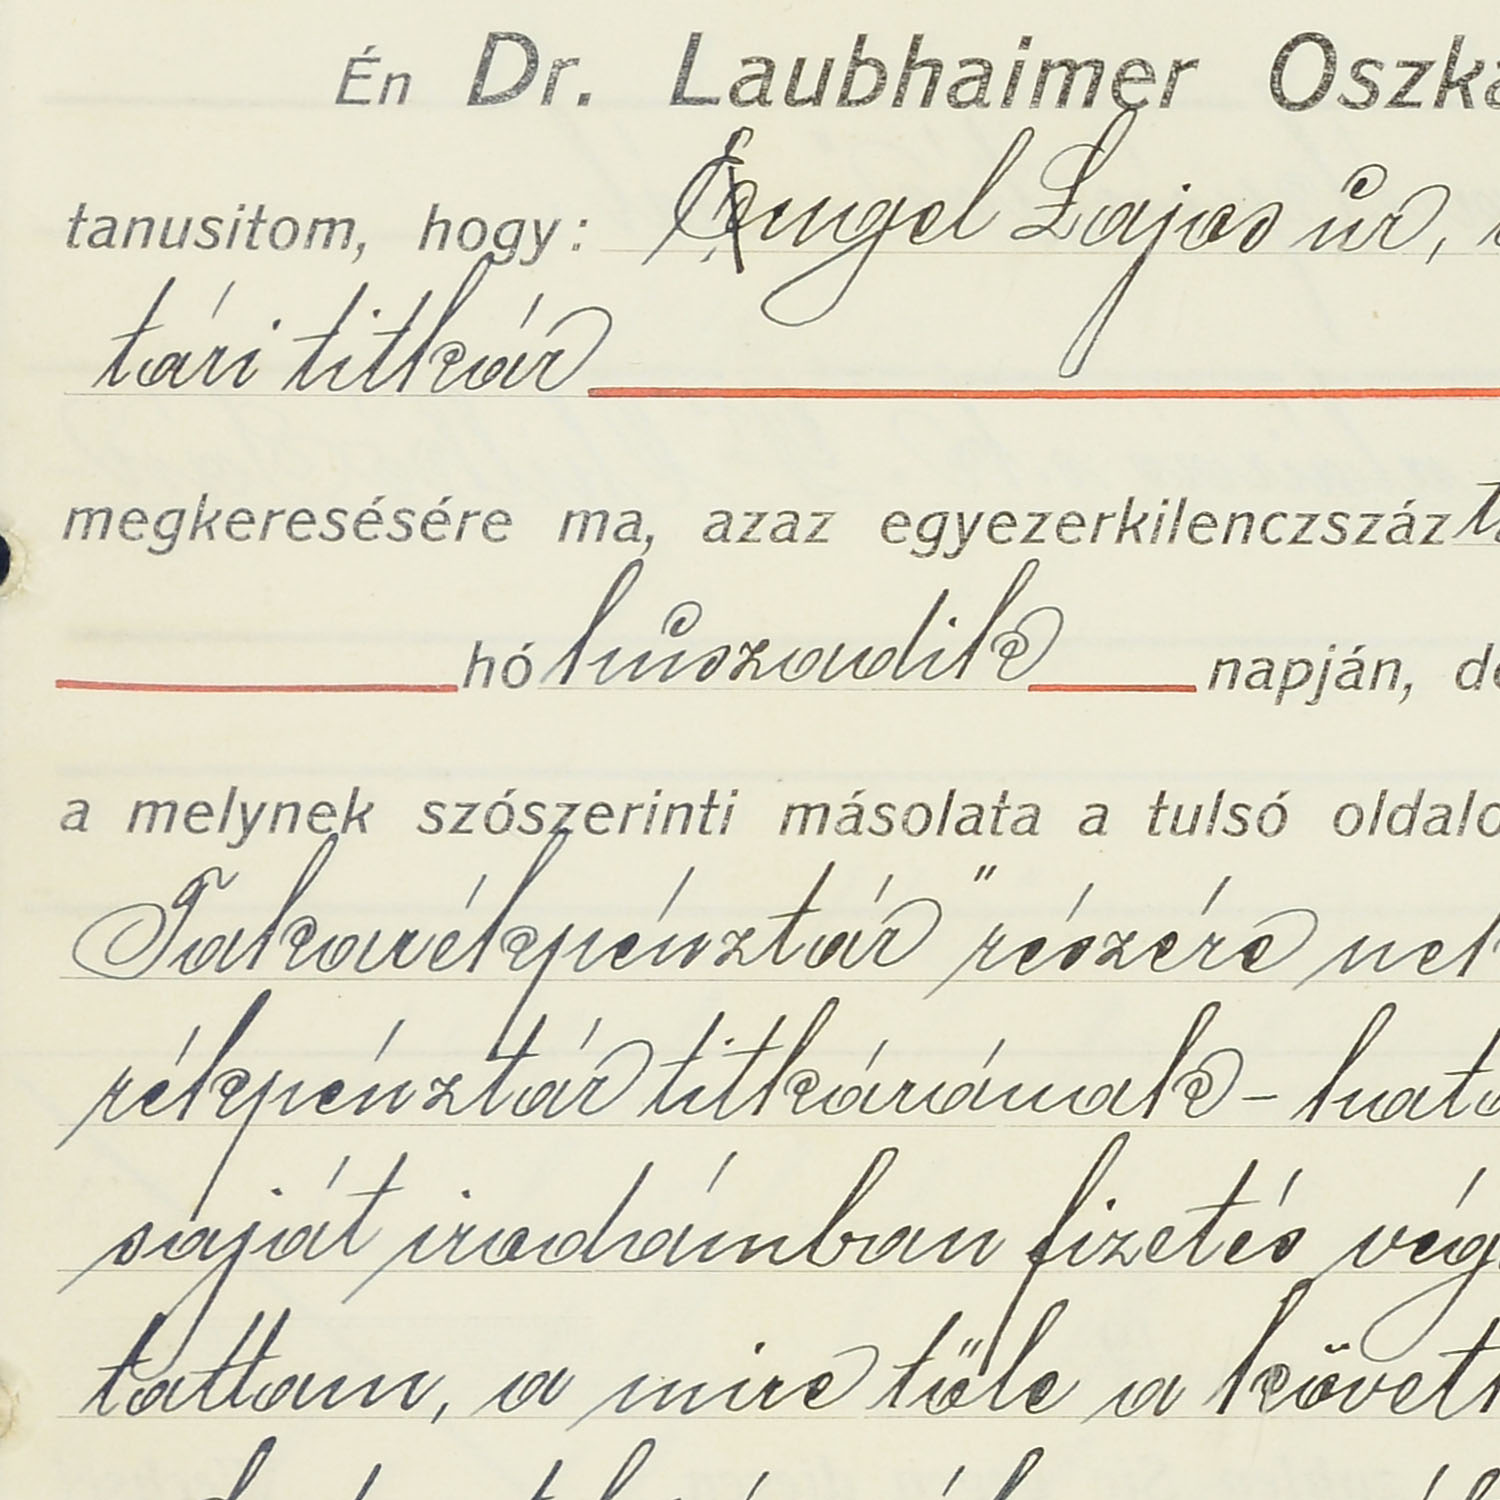 Én Dr. Laubhaimer Oszká
tanusitom, hogy: Engel Lajos úr,
tári titkár
megkeresésére ma, azaz egyezerkilenczszáz
hó huszadik napján, de
a melynek szószerinti másolata a tulsó oldalo
Takarékpénztár" részére nek
rékpénztár titkárának - ható
saját irodámban fizetés vég
tattam, a mire tőle a követk